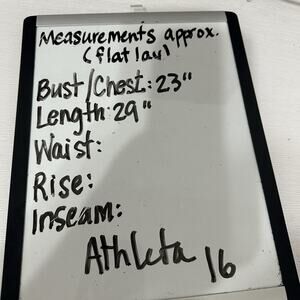 Measurements approx.
(flat lay)
Bust/Chest: 23"
Length: 29"
Waist:
Rise:
Inseam:
Athleta 16